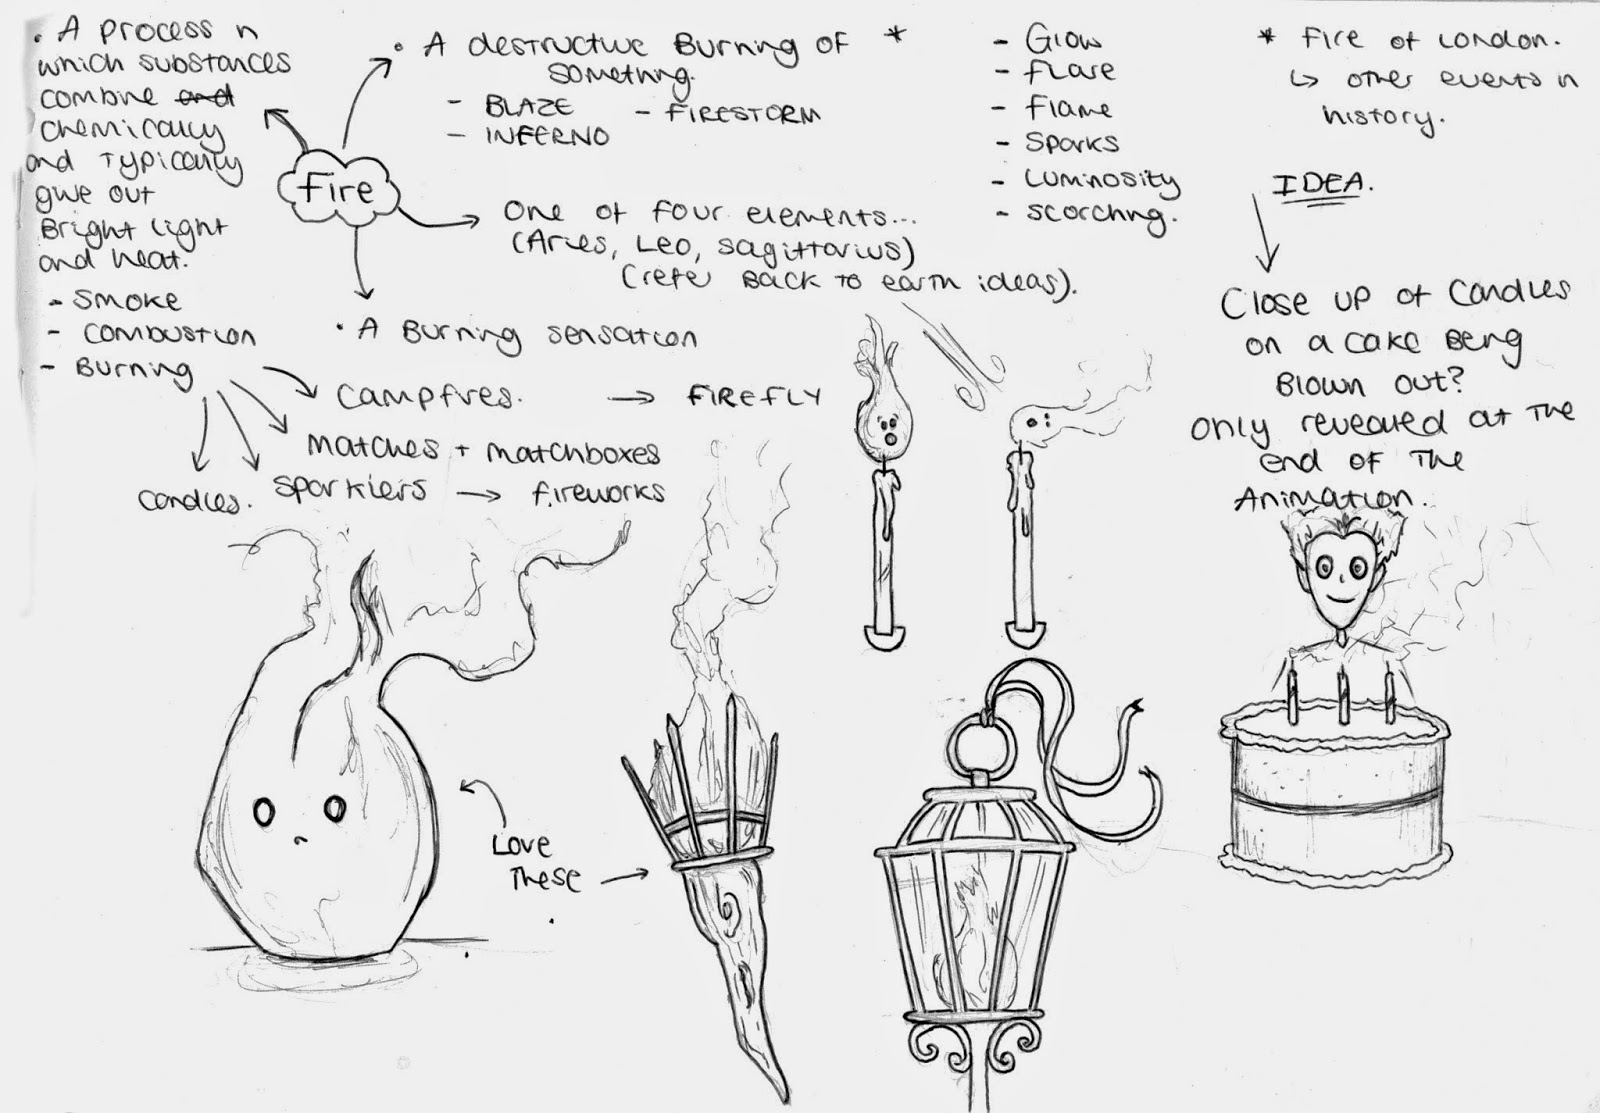 • A process n
which substances
combine and
chemically
and typically
give out
Bright light
and heat.
- smoke
- combustion
- Burning
Fire
• A destructive Burning of *
something.
- BLAZE - FIRESTORM
- INFERNO
One of four elements...
(Aries, Leo, Sagittarius)
(refer Back to earth ideas).
• A Burning sensation
campfires. → FIREFLY
matches + matchboxes
sparklers → fireworks
candles.
- Glow
- flare
- flame
- sparks
- Luminosity
- scorching.
* Fire of London.
↳ other events in
history.
IDEA.
Close up of candles
on a cake Being
Blown out?
Only revealed at the
end of the
Animation.
Love
These